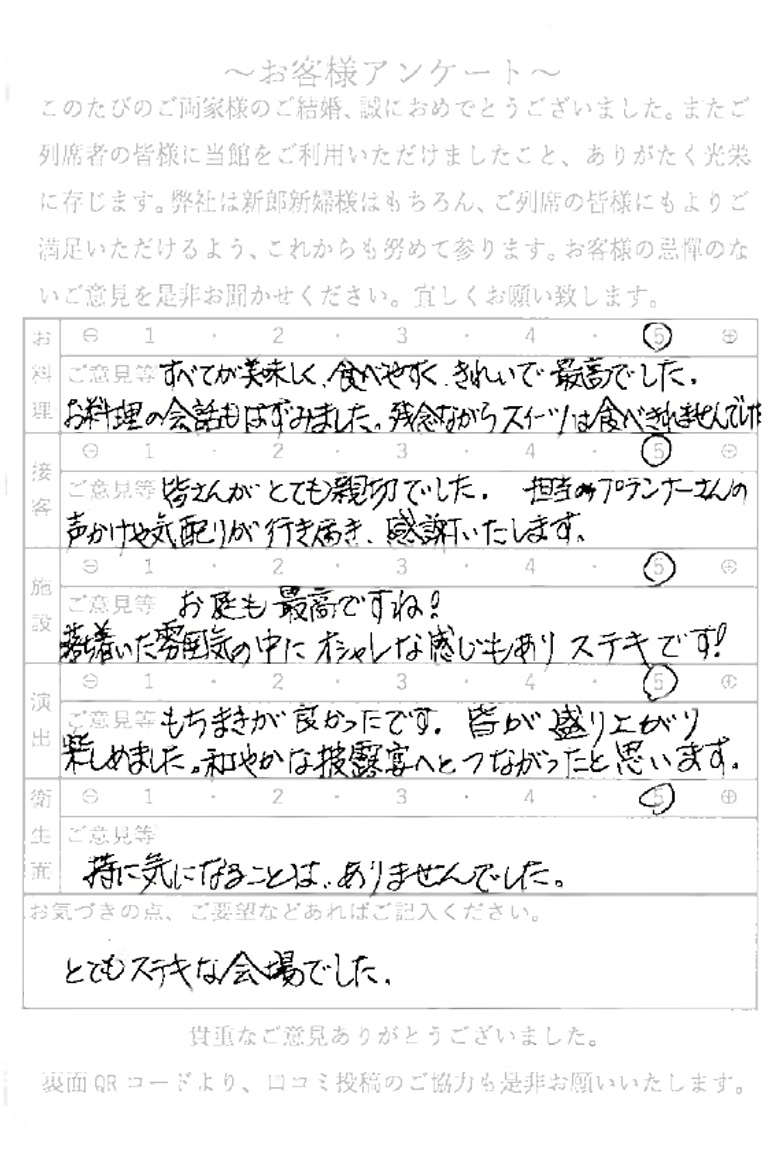 ～お客様アンケート～
このたびのご両家様のご結婚、誠におめでとうございました。またご
列席者の皆様に当館をご利用いただけましたこと、ありがたく光栄
に存じます。弊社は新郎新婦様はもちろん、ご列席の皆様にもよりご
満足いただけるよう、これからも努めて参ります。お客様の忌憚のな
いご意見を是非お聞かせください。宜しくお願い致します。
お料理
⊖ 1 ・ 2 ・ 3 ・ 4 ・ 5 ⊕
ご意見等 すべてが美味しく、食べやすく、きれいで最高でした。
お料理の会話もはずみました。残念ながらスイーツは食べきれませんでした
接客
⊖ 1 ・ 2 ・ 3 ・ 4 ・ 5 ⊕
ご意見等 皆さんがとても親切でした。 担当のプランナーさんの
声かけや気配りが行き届き、感謝いたします。
施設
⊖ 1 ・ 2 ・ 3 ・ 4 ・ 5 ⊕
ご意見等 お庭も最高ですね!
落ち着いた雰囲気の中にオシャレな感じもありステキです!
演出
⊖ 1 ・ 2 ・ 3 ・ 4 ・ 5 ⊕
ご意見等 もちまきが良かったです。皆が盛り上がり
楽しめました。和やかな披露宴へとつながったと思います。
衛生面
⊖ 1 ・ 2 ・ 3 ・ 4 ・ 5 ⊕
ご意見等
特に気になることは、ありませんでした。
お気づきの点、ご要望などあればご記入ください。
とてもステキな会場でした。
貴重なご意見ありがとうございました。
裏面QRコードより、口コミ投稿のご協力も是非お願いいたします。